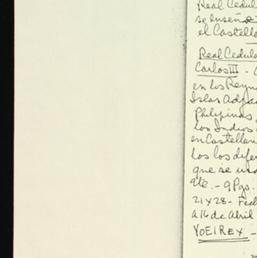 Real Cedul
se enseñe
el Castella
Real Cedula
Carlos III -
en los Reyn
Islas Adya
Philipinas,
los Indios
en Castellan
los los dife
que se us
&te. - 9 Pgs.
21 x 28 - Fed
a 16 de Abril
YO EL REX -